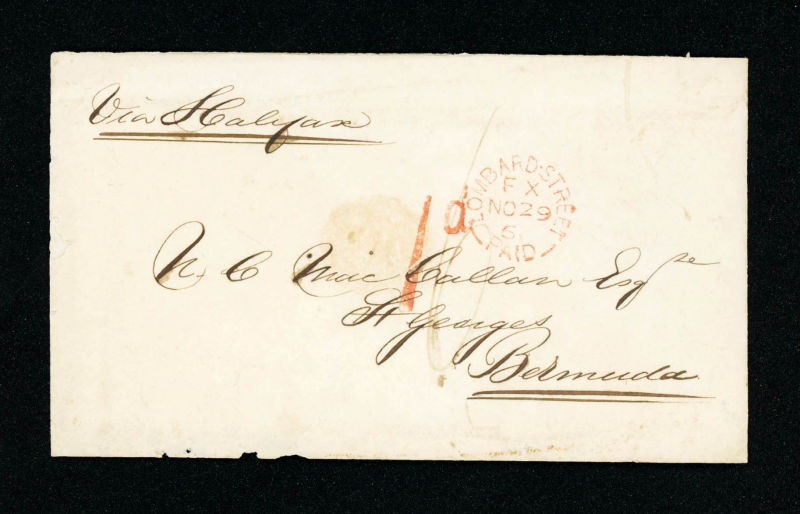 Via Halifax
LOMBARD·STREET
F X
NO 29
5
PAID
1d
N. C Mac Callan Esqre
St Georges
Bermuda